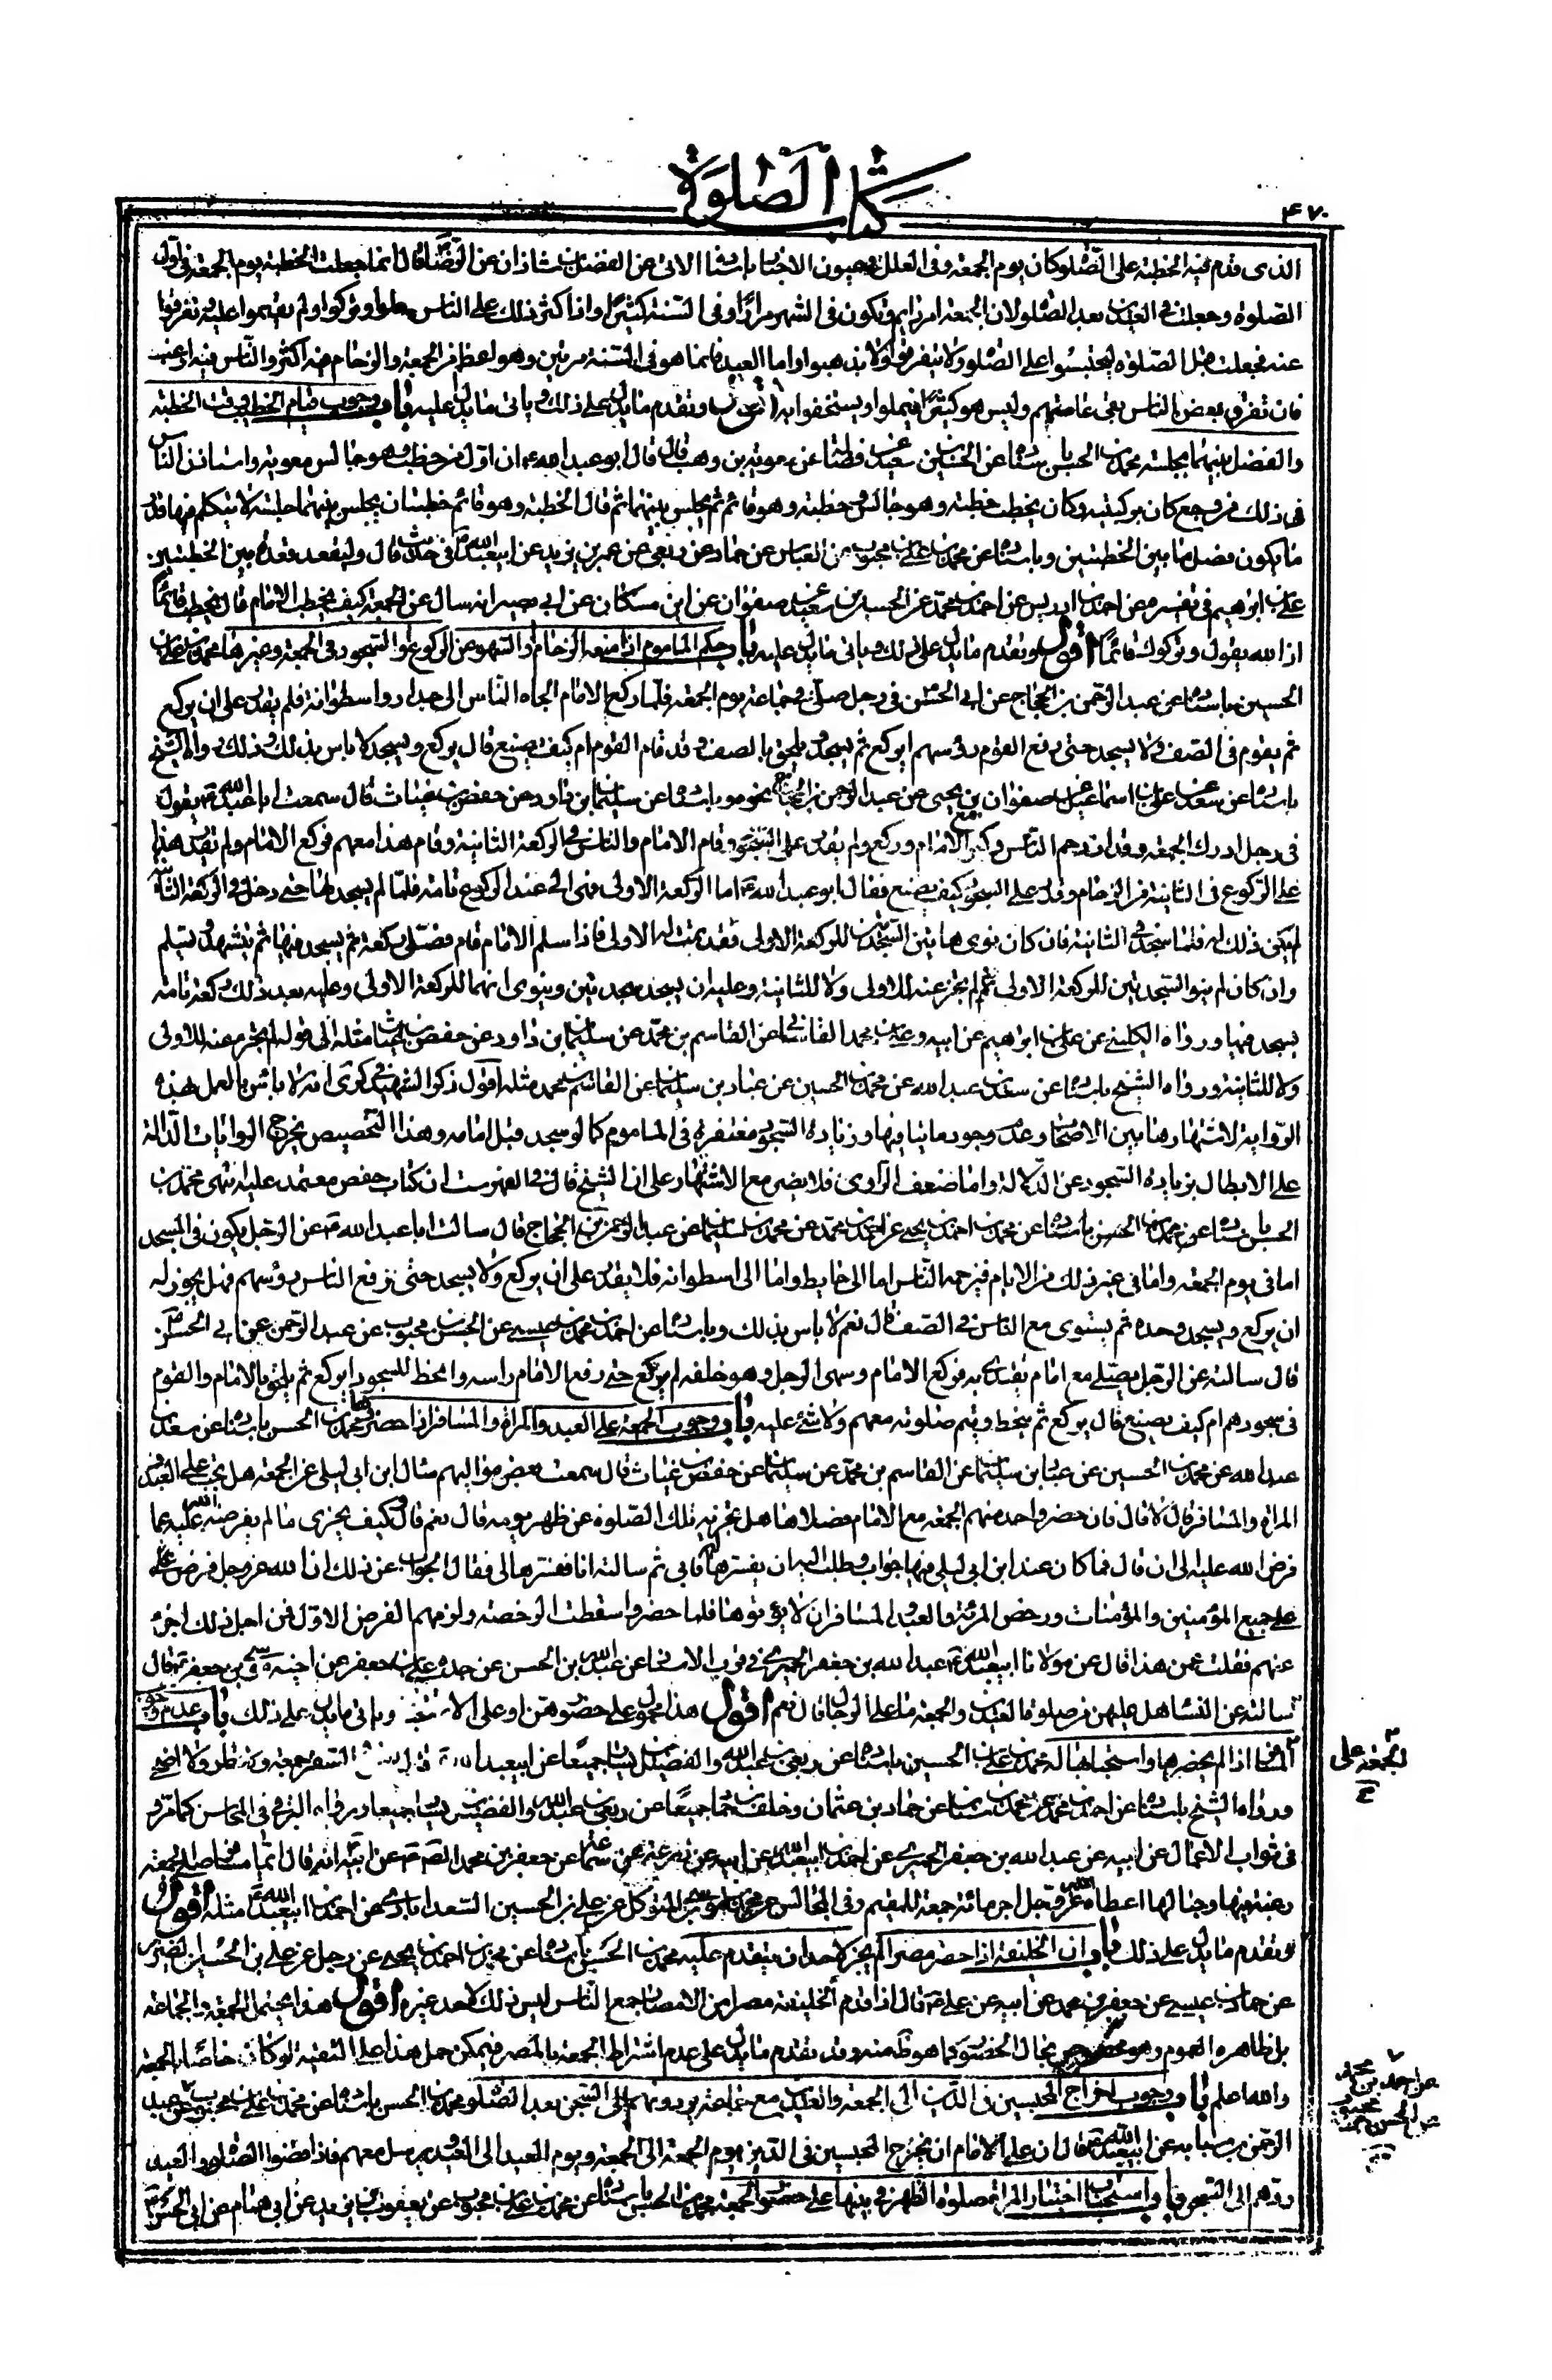 كتاب الصلوة
٤٧٠
الذى قدم فيه الخطبة على الصلوة كان يوم الجمعة وفى العلل وعيون الاخبار باسناده الاتى عن الفضل بن شاذان عن الرضا قال انما جعلت الخطبة يوم الجمعة فى اول
الصلوة وجعلت فى العيدين بعد الصلوة لان الجمعة امر دايم وتكون فى الشهر مرارا وفى السنة كثيرا واذا كثر ذلك على الناس ملوا وتركوا ولم يقيموا عليه وتفرقوا
عنه فجعلت قبل الصلوة ليحتبسوا على الصلوة ولا يتفرقوا ولا يذهبوا واما العيدين فانما هو فى السنة مرتين وهو اعظم من الجمعة والزحام فيه اكثر والناس فيه ارغب
فان تفرق بعض الناس بقى عامتهم وليس هو كثيرا فيملوا ويستخفوا به اقول وتقدم ما يدل على ذلك وياتى ما يدل عليه باب وجوب قيام الخطيب وقت الخطبة
والفصل بينهما بجلسة محمد بن الحسن باسناده عن الحسين بن سعيد عن فضالة عن معوية بن وهب قال قال ابو عبد الله ع ان اول من خطب وهو جالس معوية واستاذن الناس
فى ذلك من وجع كان بركبتيه وكان يخطب خطبة وهو جالس وخطبة وهو قائم ثم يجلس بينهما ثم قال الخطبة وهو قائم خطبتان يجلس بينهما جلسة لا يتكلم فيها قدر
ما يكون فصل ما بين الخطبتين وباسناده عن محمد بن على بن محبوب عن العباس عن حماد عن ربعى عن عمر بن يزيد عن ابيعبد الله ع فى حديث قال وليقعد قعدة بين الخطبتين
على بن ابراهيم فى تفسيره عن احمد بن ادريس عن احمد بن محمد عن الحسين بن سعيد عن صفوان عن ابن مسكان عن ابى بصير انه سال عن الجمعة كيف يخطب الامام قال يخطب قائما
ان الله يقول وتركوك قائما اقول وتقدم ما يدل على ذلك وياتى ما يدل عليه باب حكم الماموم اذا منعه الزحام او السهو عن الركوع او السجود فى الجمعة وغيرها محمد بن على بن
الحسين باسناده عن عبد الرحمن بن الحجاج عن ابى الحسن فى رجل صلى فى جماعة يوم الجمعة فلما ركع الامام الجاه الناس الى جدار او اسطوانة فلم يقدر على ان يركع
ثم يقوم فى الصف ولا يسجد حتى رفع القوم رؤسهم ايركع ثم يسجد ويلحق بالصف وقد قام القوم ام كيف يصنع قال يركع ويسجد لا باس بذلك وذلك رواه الشيخ
باسناده عن سعد عن على بن اسماعيل عن صفوان بن يحيى عن عبد الرحمن بن الحجاج نحوه وباسناده عن سليمان بن داود عن حفص بن غياث قال سمعت ابا عبد الله ع يقول
فى رجل ادرك الجمعة وقد ازدحم الناس وكبر مع الامام وركع ولم يقدر على السجود وقام الامام والناس فى الركعة الثانية وقام هذا معهم فركع الامام ولم يقدر هذا
على الركوع فى الثانية من الزحام وقدر على السجود كيف يصنع فقال ابو عبد الله ع اما الركعة الاولى فهى الى عند الركوع تامة فلما لم يسجد لها حتى دخل فى الركعة الثانية
لم يكن ذلك له فلما سجد فى الثانية فان كان نوى هاتين السجدتين للركعة الاولى فقد تمت له الاولى فاذا سلم الامام قام فصلى ركعة ثم يسجد فيها ثم يتشهد ويسلم
وان كان لم ينو السجدتين للركعة الاولى لم تجز عنه للاولى ولا للثانية وعليه ان يسجد سجدتين وينوى انهما للركعة الاولى وعليه بعد ذلك ركعة تامة
يسجد فيها ورواه الكلينى عن على بن ابراهيم عن ابيه وعلى بن محمد القاسانى عن القاسم بن محمد عن سليمان بن داود عن حفص بن غياث مثله الى قوله لم تجز عنه للاولى
ولا للثانية ورواه الشيخ باسناده عن سعد بن عبد الله عن محمد بن الحسين عن عباد بن سليمان عن القاسم بن محمد مثله اقول ذكر الشهيد فى الذكرى انه لا باس بالعمل بهذه
الرواية لاشتهارها بين الاصحاب وعدم وجود ما ينافيها وزيادة السجود مغتفرة فى الماموم كما لو سجد قبل امامه وهذا التخصيص يخرج الروايات الدالة
على الابطال بزيادة السجود عن الدلالة واما ضعف الراوى فلا يضر مع الاشتهار على ان الشيخ قال فى الفهرست ان كتاب حفص معتمد عليه انتهى محمد بن
الحسن باسناده عن محمد بن احمد بن يحيى عن احمد بن محمد عن محمد بن سليمان عن عبد الرحمن بن الحجاج قال سالت ابا عبد الله ع عن الرجل يكون فى المسجد
اما فى يوم الجمعة واما فى غير ذلك من الايام فيزحمه الناس اما الى حايط واما الى اسطوانة فلا يقدر على ان يركع ولا يسجد حتى رفع الناس رؤسهم فهل يجوز له
ان يركع ويسجد وحده ثم يستوى مع الناس فى الصف قال نعم لا باس بذلك وباسناده عن احمد بن محمد بن عيسى عن الحسن بن محبوب عن عبد الرحمن عن ابى الحسن ع
قال سالته عن الرجل يصلى مع امام يقتدى به فركع الامام وسهى الرجل وهو خلفه لم يركع حتى رفع الامام راسه وانحط للسجود ايركع ثم يلحق بالامام والقوم
فى سجودهم ام كيف يصنع قال يركع ثم ينحط ويتم صلوته معهم ولا شئ عليه باب وجوب الجمعة على العبد والمراة والمسافر اذا حضروها محمد بن الحسن باسناده عن سعد بن
عبد الله عن محمد بن الحسين عن عباد بن سليمان عن القاسم بن محمد عن سليمان عن حفص بن غياث قال سمعت بعض مواليهم سال ابن ابى ليلى عن الجمعة هل تجب على العبد و
المراة والمسافر قال لا قال فان حضر واحد منهم الجمعة مع الامام فصلاها هل تجزيه تلك الصلوة عن ظهر يومه قال نعم قال وكيف يجزى ما لم يفرضه الله عليه عما
فرض الله عليه الى ان قال فما كان عند ابن ابى ليلى فيها جواب وطلب اليه ان يفسرها له فابى ثم سالته انا ففسرها لى فقال الجواب عن ذلك ان الله عز وجل فرض
على جميع المؤمنين والمؤمنات ورخص للمرئة والعبد والمسافر ان لا ياتوها فلما حضروا سقطت الرخصة ولزمهم الفرض الاول فمن اجل ذلك اجزا
عنهم فقلت عمن هذا قال عن مولانا ابيعبد الله ع عبد الله بن جعفر الحميرى فى قرب الاسناد عن عبد الله بن الحسن عن جده على بن جعفر عن اخيه موسى بن جعفر ع قال
سالته عن النساء هل عليهن من صلوة العيدين والجمعة ما على الرجال قال نعم اقول هذا محمول على حضورهن او على الاستحباب وياتى ما يدل على ذلك باب عدم وجوب
الجمعة على
المسافر اذا لم يحضرها واستحبابها له محمد بن على بن الحسين باسناده عن ربعى بن عبد الله والفضيل بن يسار جميعا عن ابيعبد الله ع قال ليس فى السفر جمعة ولا فطر ولا اضحى
ورواه الشيخ باسناده عن احمد بن محمد عن محمد بن سنان عن حماد بن عثمان وخلف بن حماد جميعا عن ربعى بن عبد الله والفضيل بن يسار جميعا ورواه البرقى فى المحاسن كما مر و
فى ثواب الاعمال عن ابيه عن عبد الله بن جعفر الحميرى عن احمد بن ابيعبد الله عن ابيه عن زرعة عن سماعة عن جعفر بن محمد الصادق ع عن ابيه انه قال ايما مسافر صلى الجمعة
رغبة فيها وحبا لها اعطاه الله عز وجل اجر مائة جمعة للمقيم وفى المجالس عن محمد بن موسى بن المتوكل عن على بن الحسين السعدابادى عن احمد بن ابيعبد الله مثله اقول
وتقدم ما يدل على ذلك باب ان الخليفة اذا حضر مصرا لم يجز لاحد ان يتقدم عليه محمد بن الحسن باسناده عن محمد بن احمد بن يحيى عن رجل عن على بن الحسين الضرير
عن حماد بن عيسى عن جعفر بن محمد عن ابيه عن على ع قال اذا قدم الخليفة مصرا من الامصار جمع الناس ليس ذلك لاحد غيره اقول هذا يحتمل الجمعة والجماعة
بل ظاهره العموم وهو مخصوص بحال الحضور كما هو ظاهره وقد تقدم ما يدل على عدم اشتراط الجمعة بالمصر فيمكن حمل هذا على التقية لو كان خاصا بالجمعة
والله اعلم باب وجوب اخراج المحبسين فى الدين الى الجمعة والعيدين مع جماعة يردونهم الى السجن بعد الصلوة محمد بن الحسن باسناده عن محمد بن على بن محبوب عن عبد
عن احمد بن محمد
عن الحسن بن محبوب
الرحمن بن سيابة عن ابيعبد الله ع قال ان على الامام ان يخرج المحبسين فى الدين يوم الجمعة الى الجمعة ويوم العيد الى العيد ويرسل معهم فاذا قضوا الصلوة والعيد
ردهم الى السجن باب استحباب اختيار المراة صلوة الظهر فى بيتها على حضور الجمعة محمد بن الحسن باسناده عن محمد بن على بن محبوب عن يعقوب بن يزيد عن ابى همام عن ابى الحسن ع